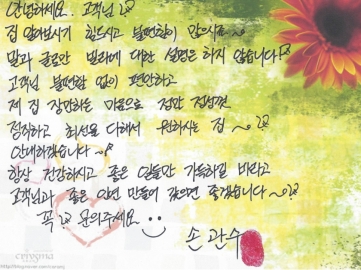 안녕하세요. 고객님
집 알아보시기 힘드시고 불편함이 많으시죠~
말과 글로만 빌라에 대한 설명은 하지 않습니다!
고객님 불편함 없이 편안하고
제 집 장만하는 마음으로 정말 친절하고
정직하고 최선을 다해서 원하시는 집~
안내하겠습니다~
항상 건강하시고 좋은 일들만 가득하길 바라고
고객님과 좋은 인연 만들어 갔으면 좋겠습니다~
꼭 문의주세요
손 관수
enigma